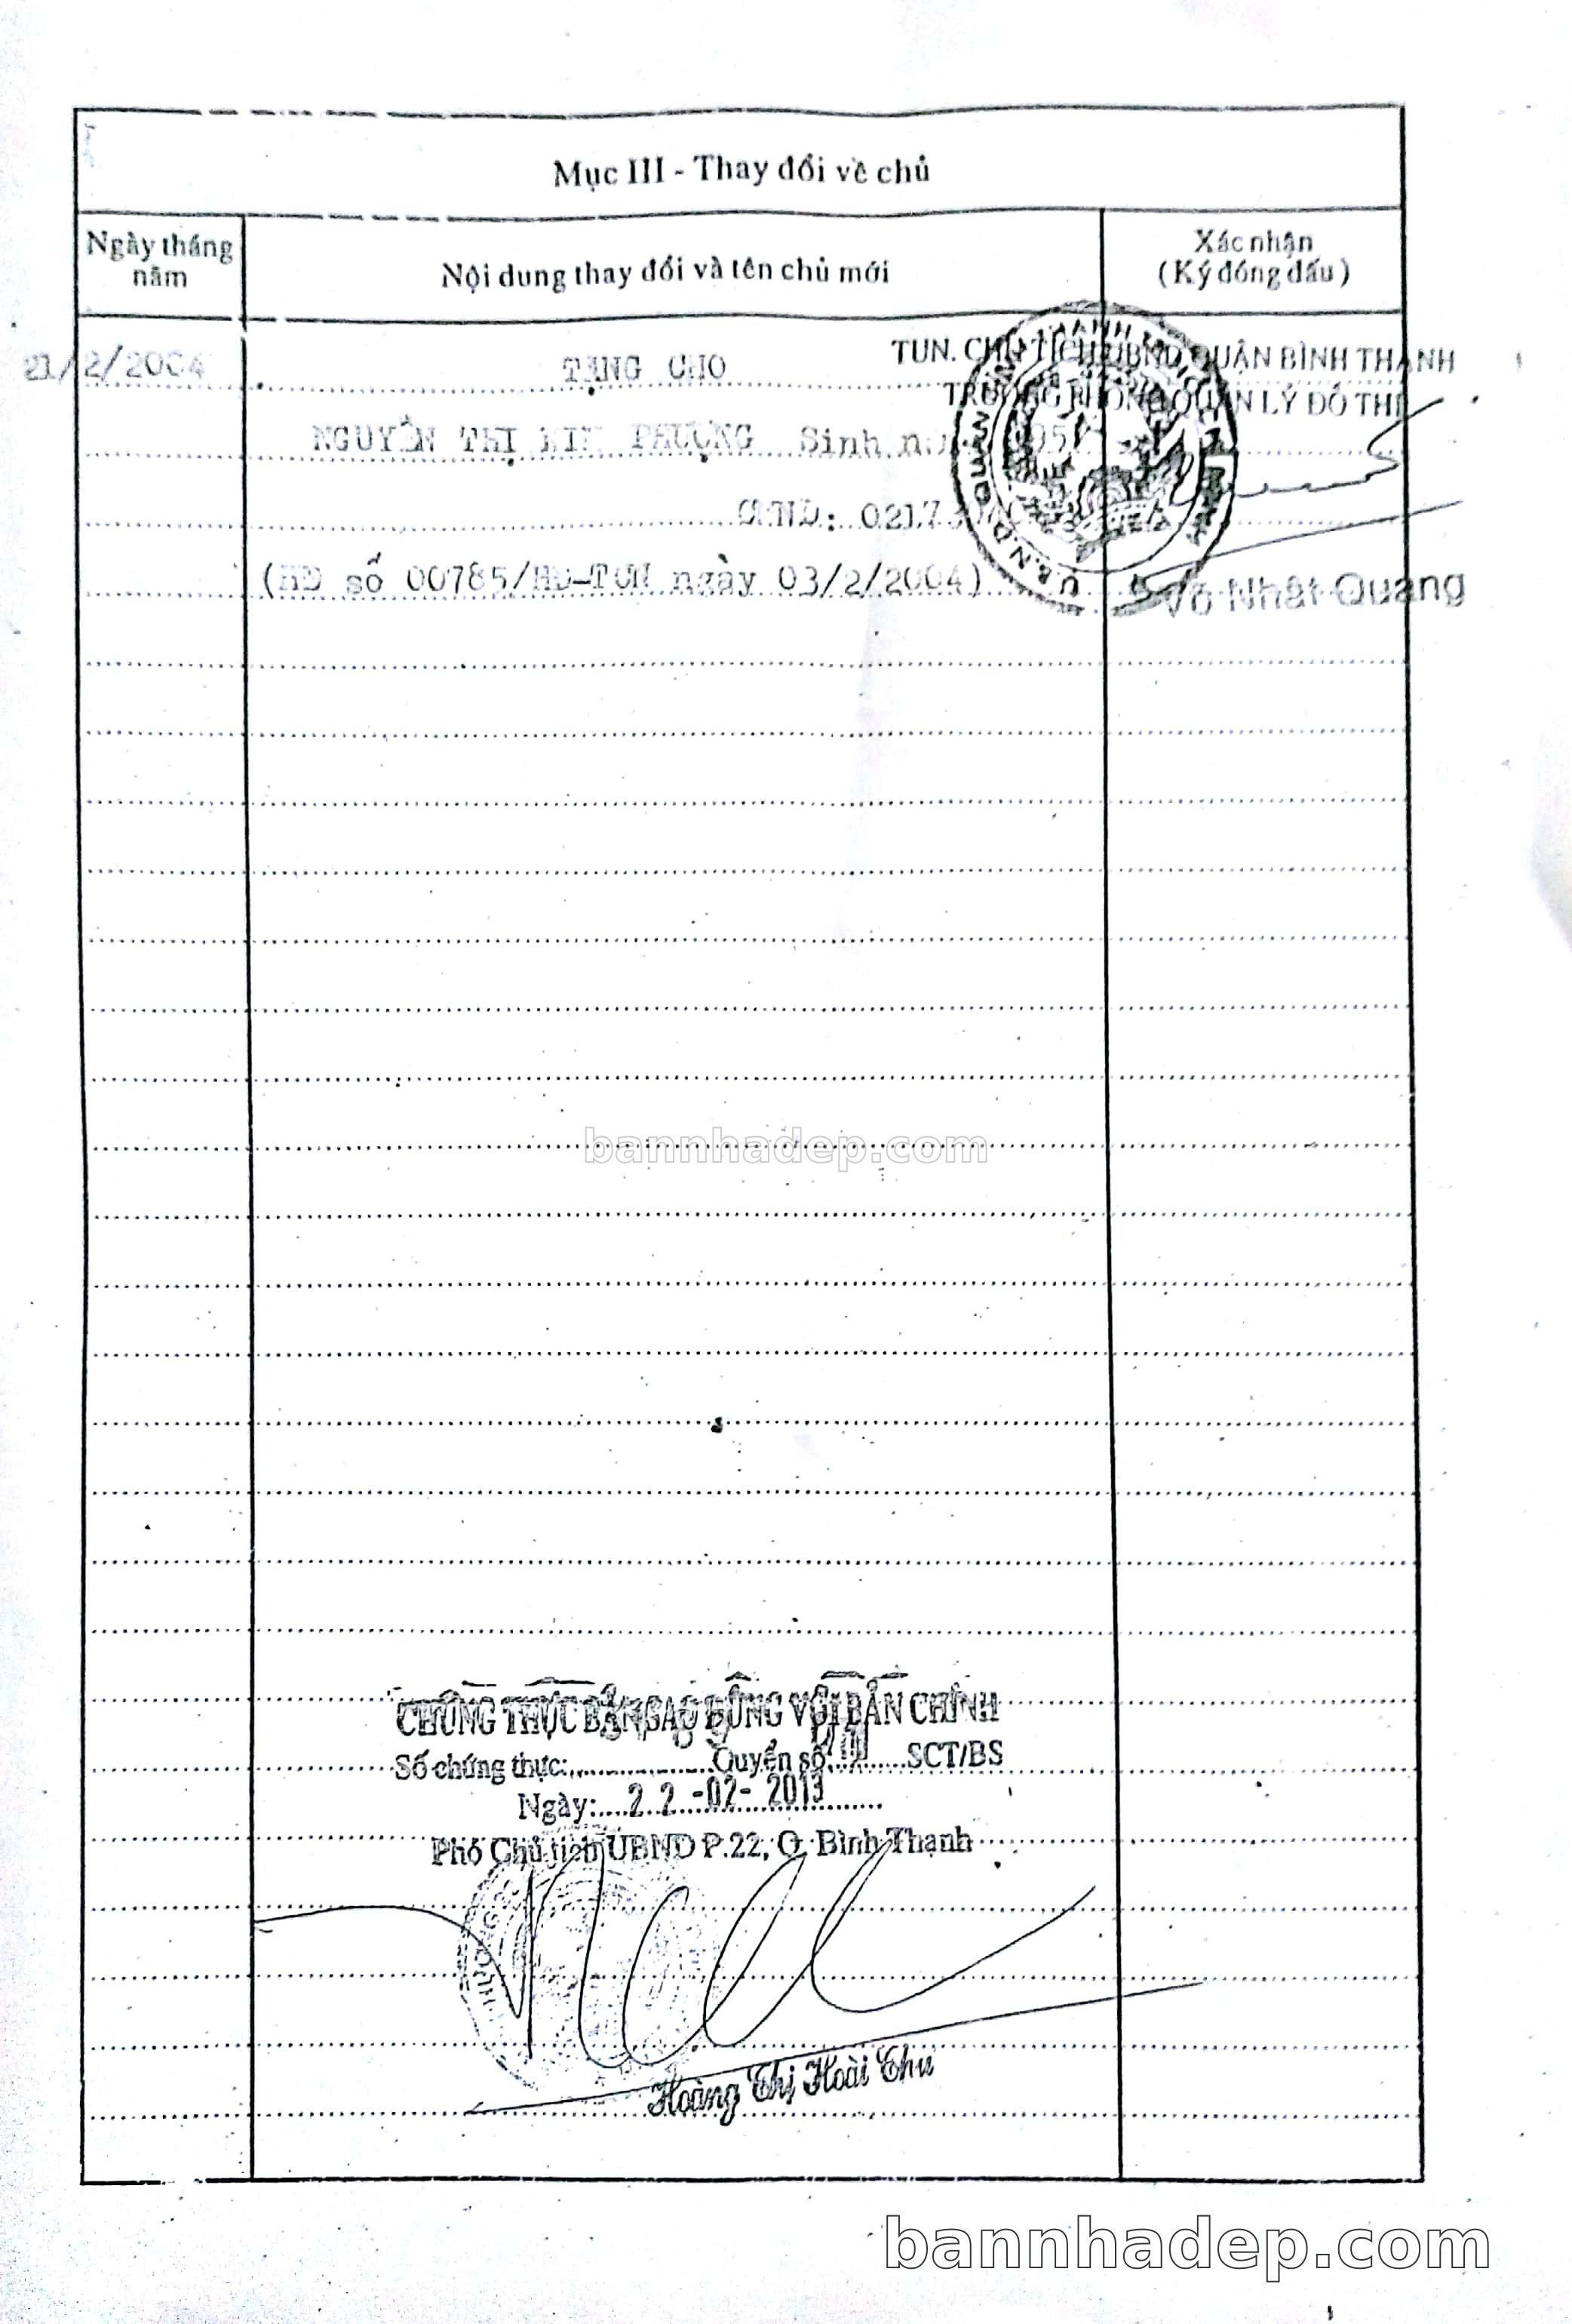 Mục III - Thay đổi về chủ
Ngày tháng năm
Nội dung thay đổi và tên chủ mới
Xác nhận
(Ký đóng dấu)
21/2/2004
TẶNG CHO
TUN. CHỦ TỊCH UBND QUẬN BÌNH THẠNH
TRƯỞNG PHÒNG QUẢN LÝ ĐÔ THỊ
NGUYỄN THỊ KIM PHƯỢNG Sinh
CMND:
(HĐ số 00785/HĐ-TCN ngày 03/2/2004)
Võ Nhật Quang
bannhadep.com
CHỨNG THỰC BẢN SAO ĐÚNG VỚI BẢN CHÍNH
Số chứng thực:...............Quyển số:.........SCT/BS
Ngày:....22 -02- 2013
Phó Chủ tịch UBND P.22, Q. Bình Thạnh
Hoàng Thị Hoài Thu
bannhadep.com